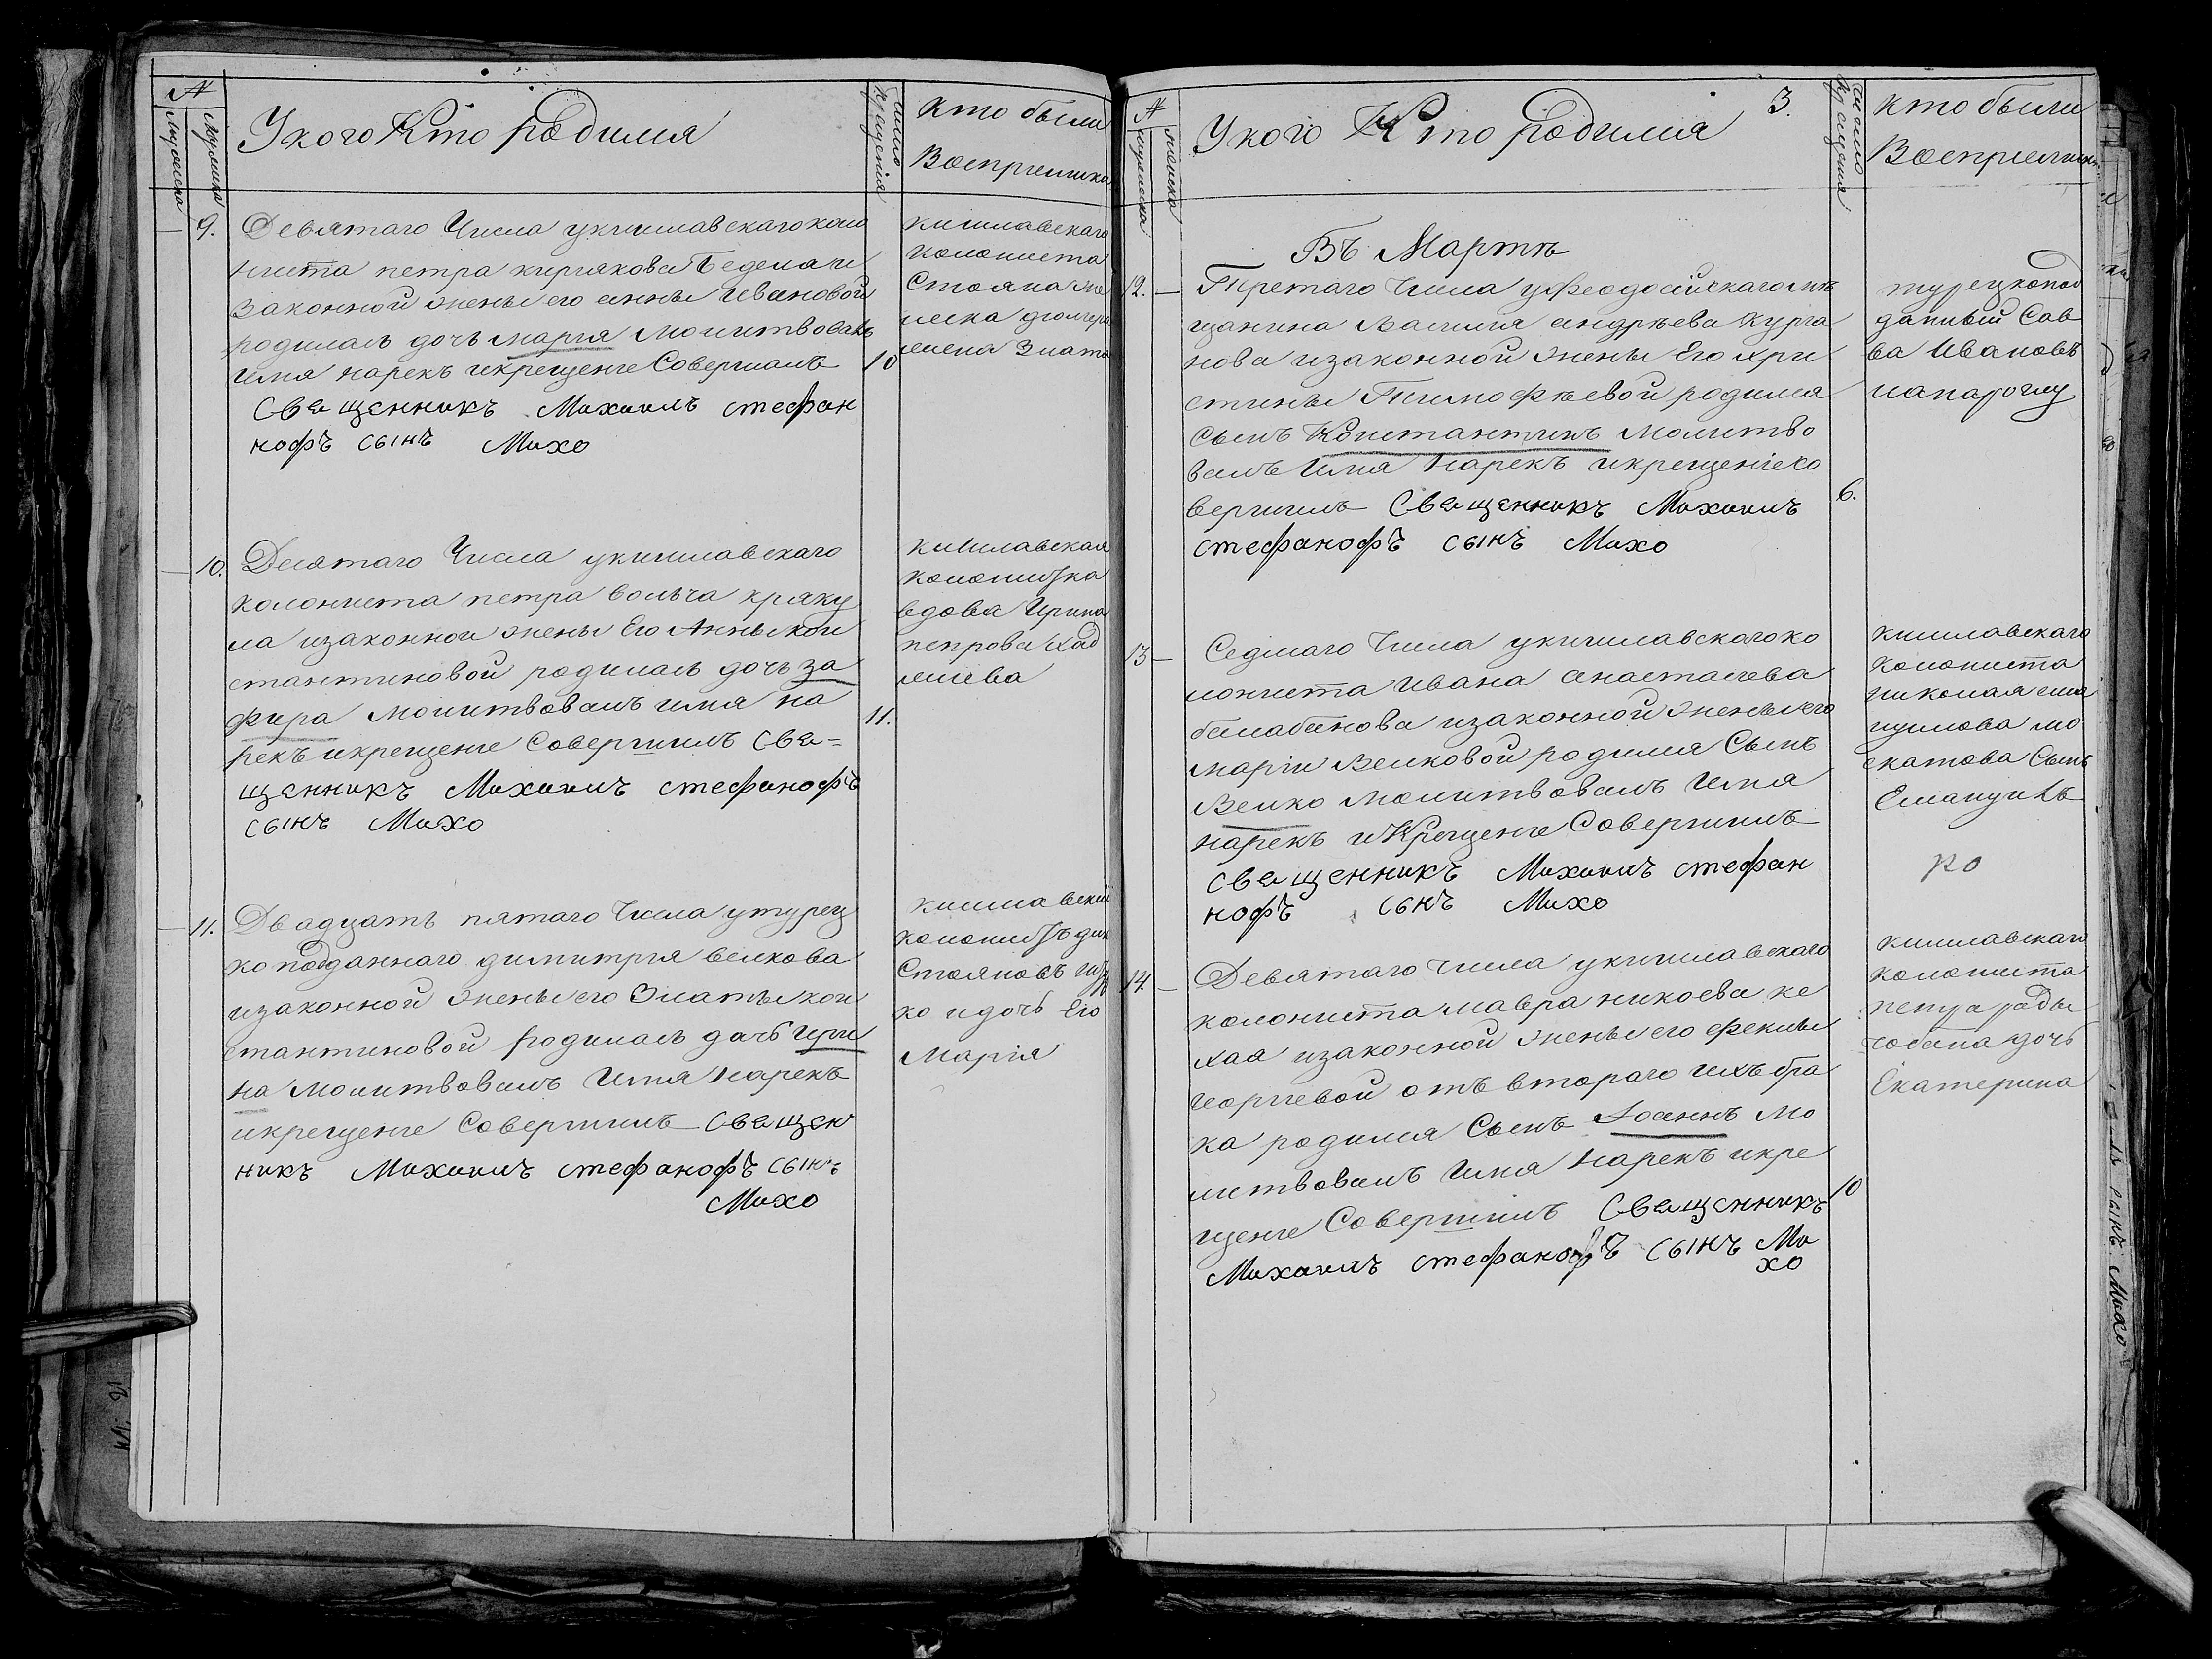 №
Мужеска
У кого Кто родился
Число крещенія
Кто были
Восприемники
9.
Девятаго Числа укишлавскаго коло
ниста петра киряков
законной жены его анны Ивановой
родилась дочь марія Молитвовалъ
Имя нарекъ икрещение Совершилъ
10
Свещенникъ Михаилъ стефан
нофъ сынъ Михо
кишлавскаго
колониста
Стояна же
злата
10.
Десятаго Числа укишлавскаго
колониста петра вольча кряку
ла изаконной жены Его Анны кон
стантиновой родилась дочь за
фира Молитвовалъ имя на
рекъ икрещение Совершилъ Све=
щенникъ Михаилъ стефанофъ
сынъ Михо
11.
кишлавская
колонистка
вдова Ирина
петрова
11.
Двадцать пятаго Числа утурец
ко подданнаго димитрия велкова
изаконной жены его Златы кон
стантиновой родилась дочь Ири
на Молитвовалъ Имя Нарекъ
икрещение Совершилъ Свещен
никъ Михаилъ стефанофъ сынъ
Михо
кишлавский
колонистъ
Стояновъ
ко и дочь Его
Марія
№
У кого Кто родился
3.
Число крещения
Кто были
Восприемники
Въ Мартѣ
12.
Третаго Числа уфеодосійскаго мѣ
щанина Василия андрѣева Курга
нова изаконной жены Его хри
стины Тимофѣевой родился
сынъ Константинъ Молитво
валъ Имя Нарекъ икрещение со
вершилъ Свещенникъ Михаилъ
стефанофъ сынъ Михо
6.
турецкопод
даный Сав
ва Ивановъ
13
Седмаго Числа укишлавскаго ко
лониста Ивана Анастасева
балабанова изаконной жены его
маріи Велковой родился Сынъ
Велко Молитвовалъ Имя
нарекъ и Крещение Совершилъ
Свещенникъ Михаилъ стефан
нофъ сынъ Михо
кишлавскаго
колониста
николая
скатова Сынъ
Емануилъ
14.
Девятаго числа укишлавскаго
колониста мавра никоева ке
хая изаконной жены его феклы
георгиевой отъ втораго ихъ бра
ка родился Сынъ Іоаннъ Мо
литвовалъ Имя Нарекъ икре
щение Совершилъ Свещенникъ
Михаилъ стефанофъ сынъ Ми
хо
10
кишлавскаго
колониста
петра рады
чобана дочь
Екатерина